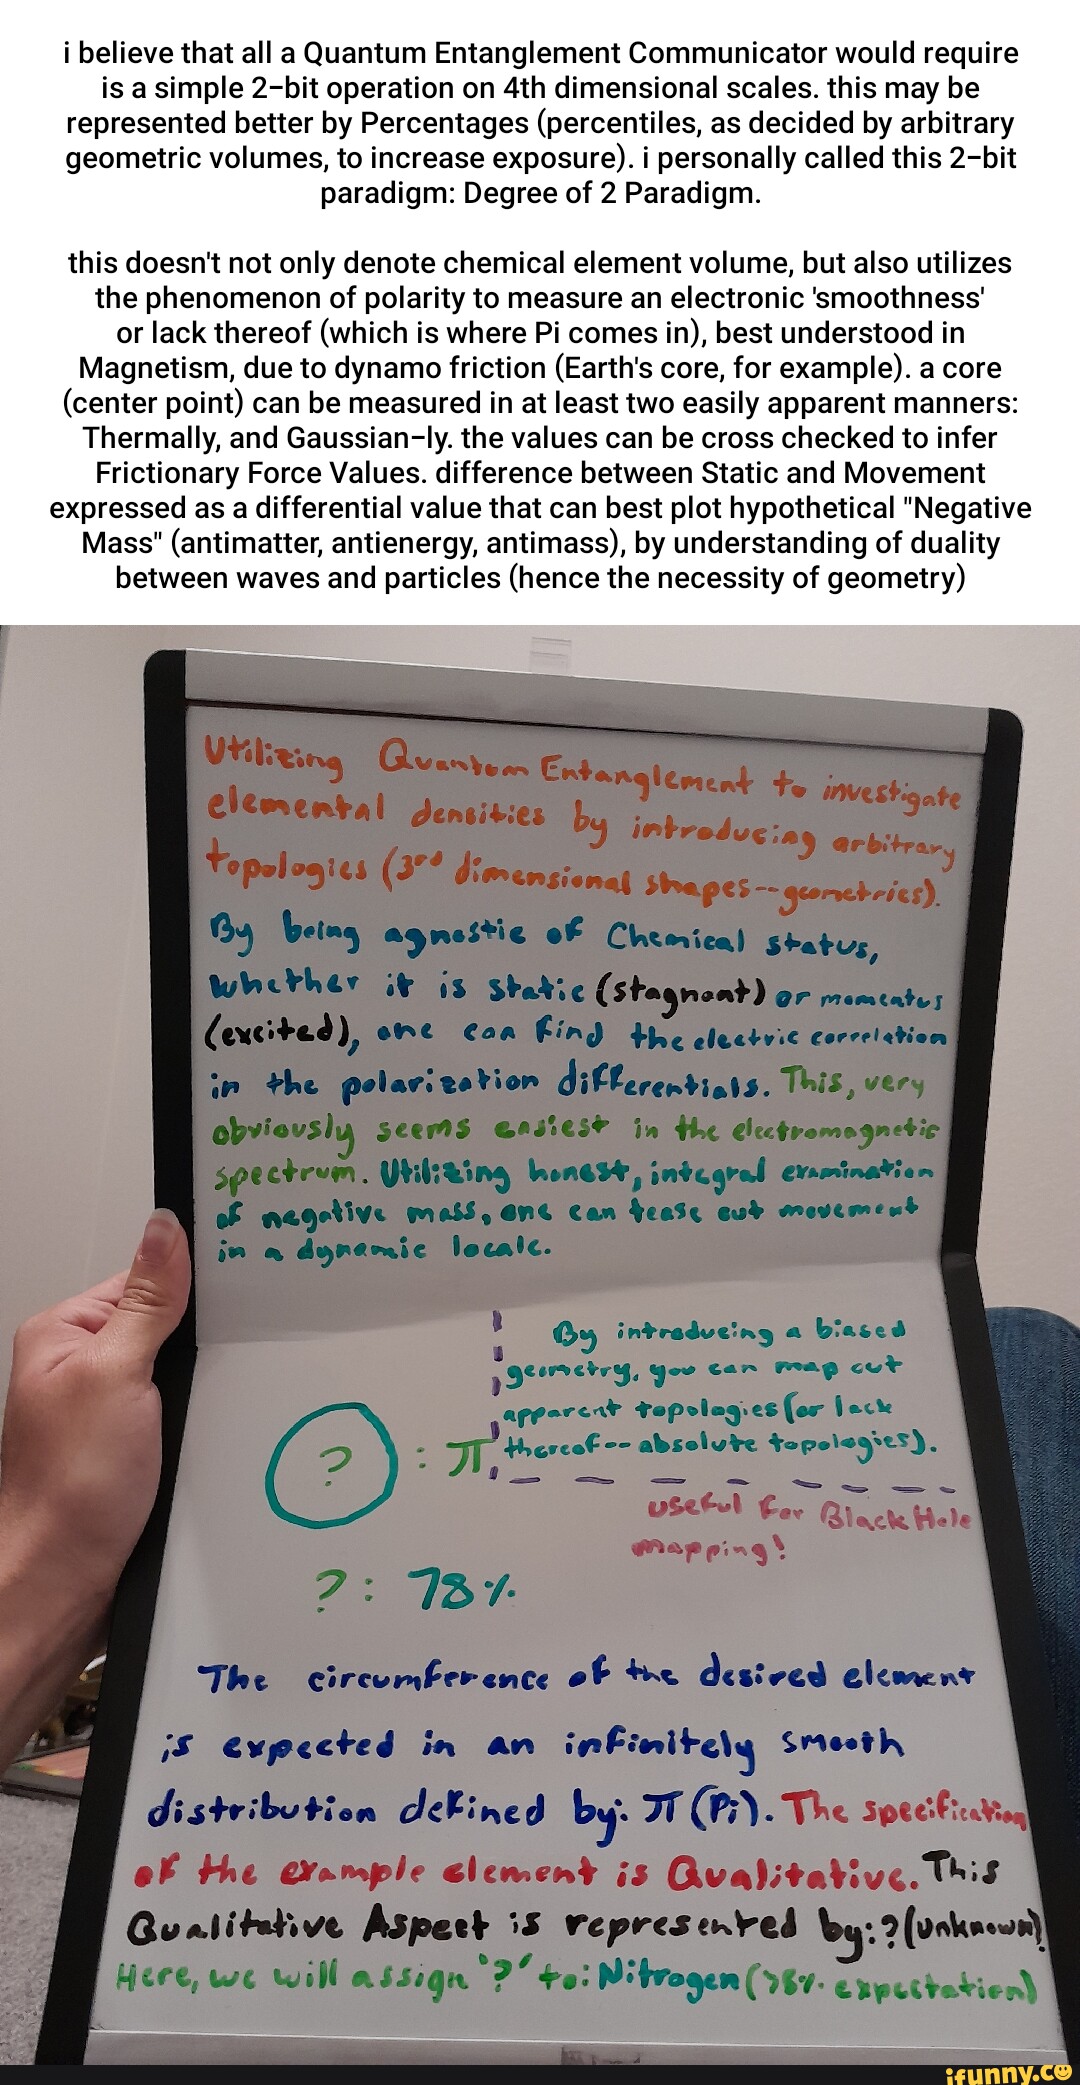 i believe that all a Quantum Entanglement Communicator would require
is a simple 2-bit operation on 4th dimensional scales. this may be
represented better by Percentages (percentiles, as decided by arbitrary
geometric volumes, to increase exposure). i personally called this 2-bit
paradigm: Degree of 2 Paradigm.
this doesn't not only denote chemical element volume, but also utilizes
the phenomenon of polarity to measure an electronic 'smoothness'
or lack thereof (which is where Pi comes in), best understood in
Magnetism, due to dynamo friction (Earth's core, for example). a core
(center point) can be measured in at least two easily apparent manners:
Thermally, and Gaussian-ly. the values can be cross checked to infer
Frictionary Force Values. difference between Static and Movement
expressed as a differential value that can best plot hypothetical "Negative
Mass" (antimatter, antienergy, antimass), by understanding of duality
between waves and particles (hence the necessity of geometry)
Utilizing Quantum Entanglement to investigate
elemental densities by introducing arbitrary
topologies (3rd dimensional shapes--geometries).
By being agnostic of Chemical status,
whether it is static (stagnant) or momentus
(excited), one can find the electric correlation
in the polarization differentials. This, very
obviously seems easiest in the electromagnetic
spectrum. Utilizing honest, integral examination
of negative mass, one can tease out movement
in a dynamic locale.
By introducing a biased
geometry, you can map out
apparent topologies (or lack
thereof-- absolute topologies).
? : π
useful for Black Hole
mapping!
? : 78%
The circumference of the desired element
is expected in an infinitely smooth
distribution defined by: π (Pi). The specification
of the example element is Qualitative. This
Qualitative Aspect is represented by: ? (unknown)
Here, we will assign '?' to: Nitrogen (78% expectation)
ifunny.co